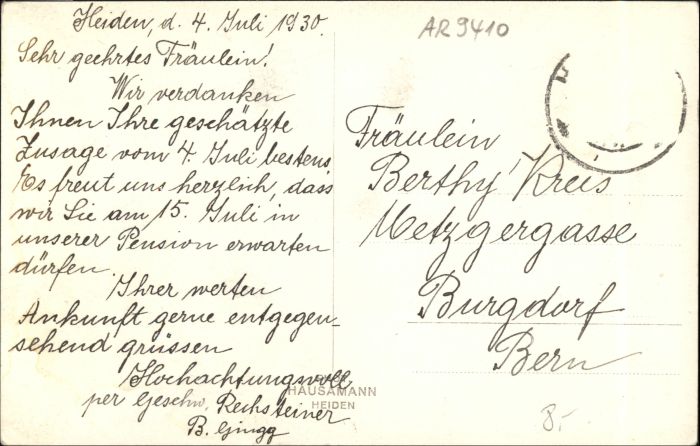 Heiden, d. 4. Juli 1930.
Sehr geehrtes Fräulein!
Wir verdanken
Ihnen Ihre geschätzte
Zusage vom 4. Juli bestens.
Es freut uns herzlich, dass
wir Sie am 15. Juli in
unserer Pension erwarten
dürfen.
Ihrer werten
Ankunft gerne entgegen-
sehend grüssen
Hochachtungsvoll
per Geschw. Rechsteiner
B. Gingg
HAUSAMANN
HEIDEN
AR 9410
Fräulein
Berthy Kreis
Metzgergasse
Burgdorf
Bern
8.-